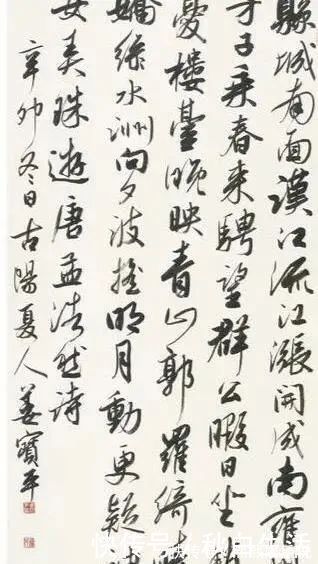 縣城南面漢江流江漲開成南雍
才子乘春來騁望群公暇日坐
憂樓臺晚映青山郭羅綺
嬌綠水洲向夕波搖明月動更疑
女弄珠遊唐孟浩然詩
辛卯冬日古陽夏人姜寶平
快传号
生活